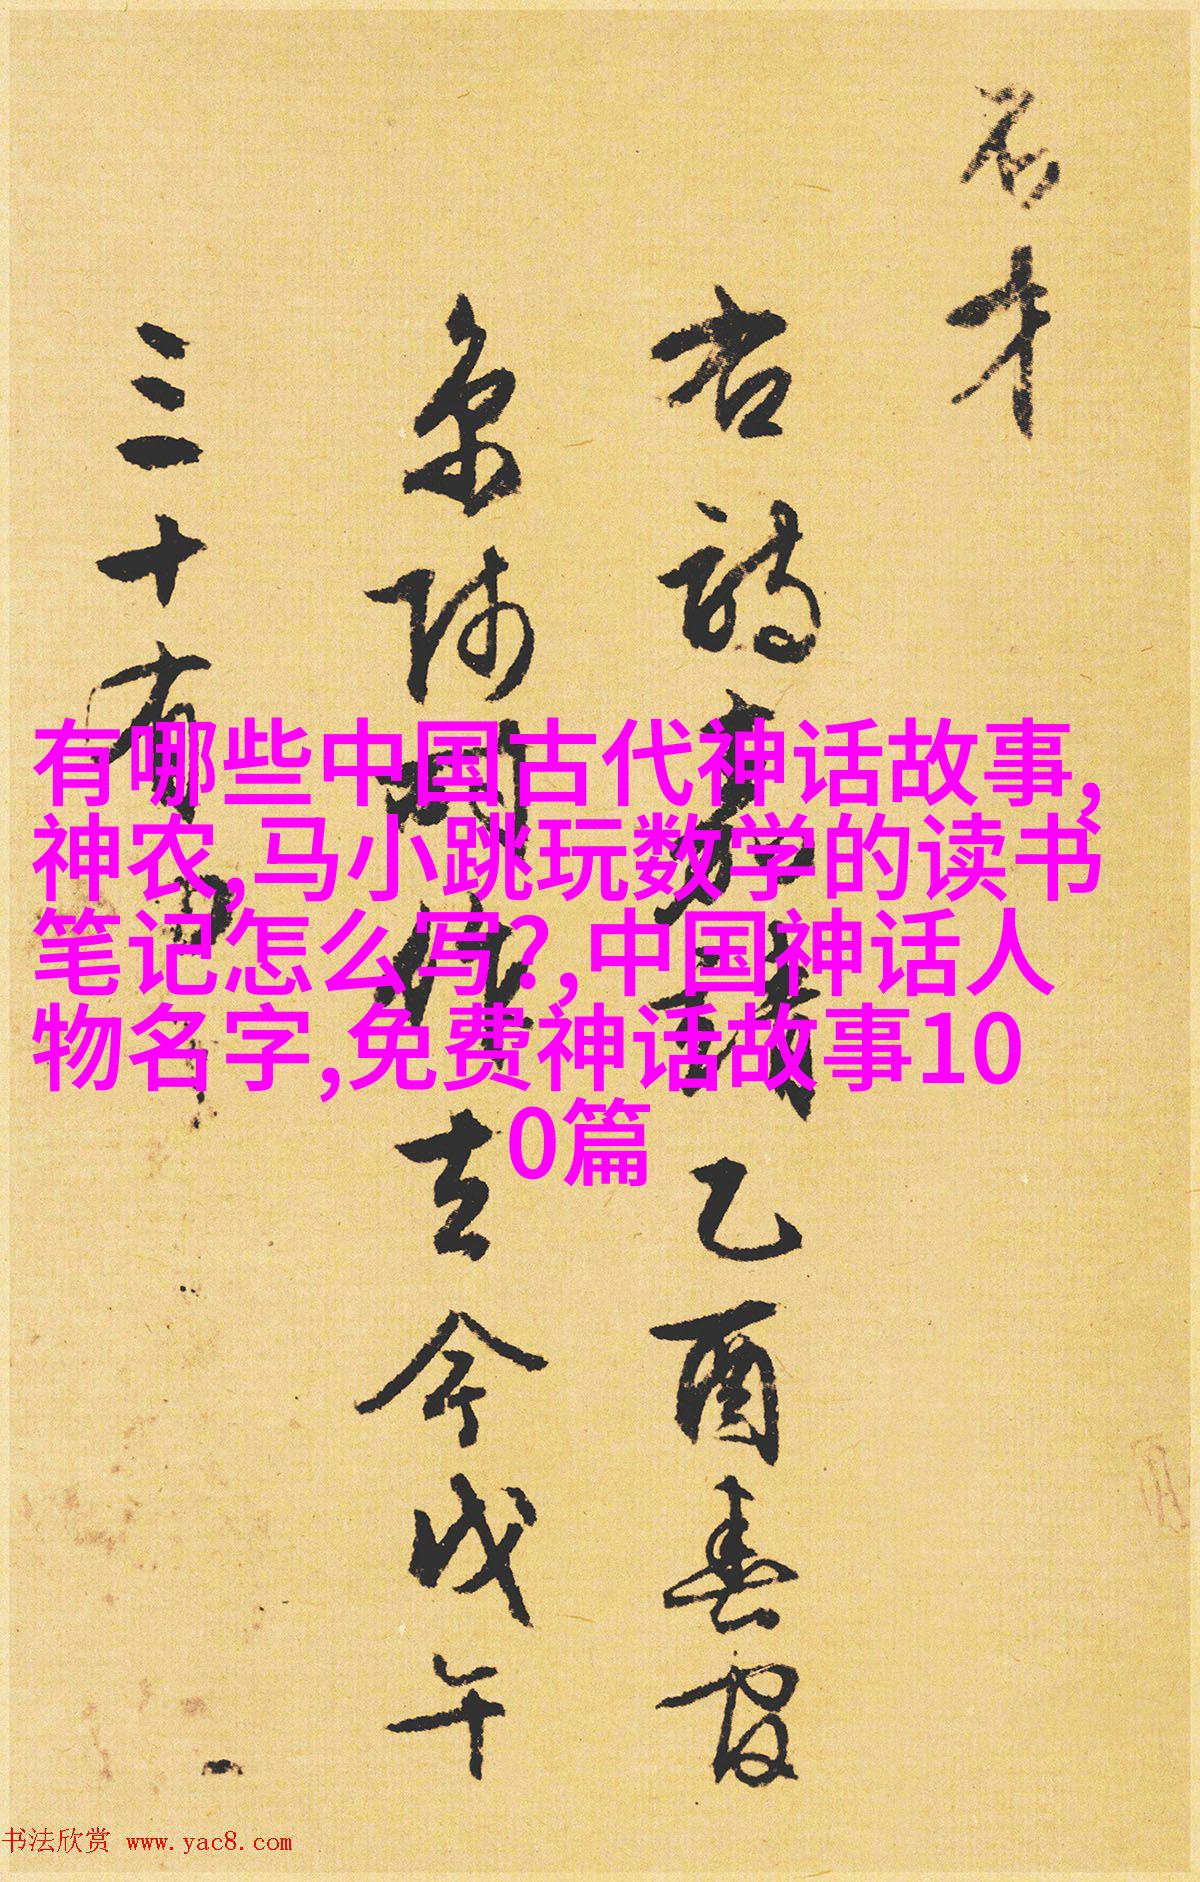 右詩
乙酉春寓
去今戊午
三十有
有哪些中国古代神话故事,
神农,马小跳玩数学的读书
笔记怎么写?,中国神话人
物名字,免费神话故事10
0篇
书法欣赏 www.yac8.com